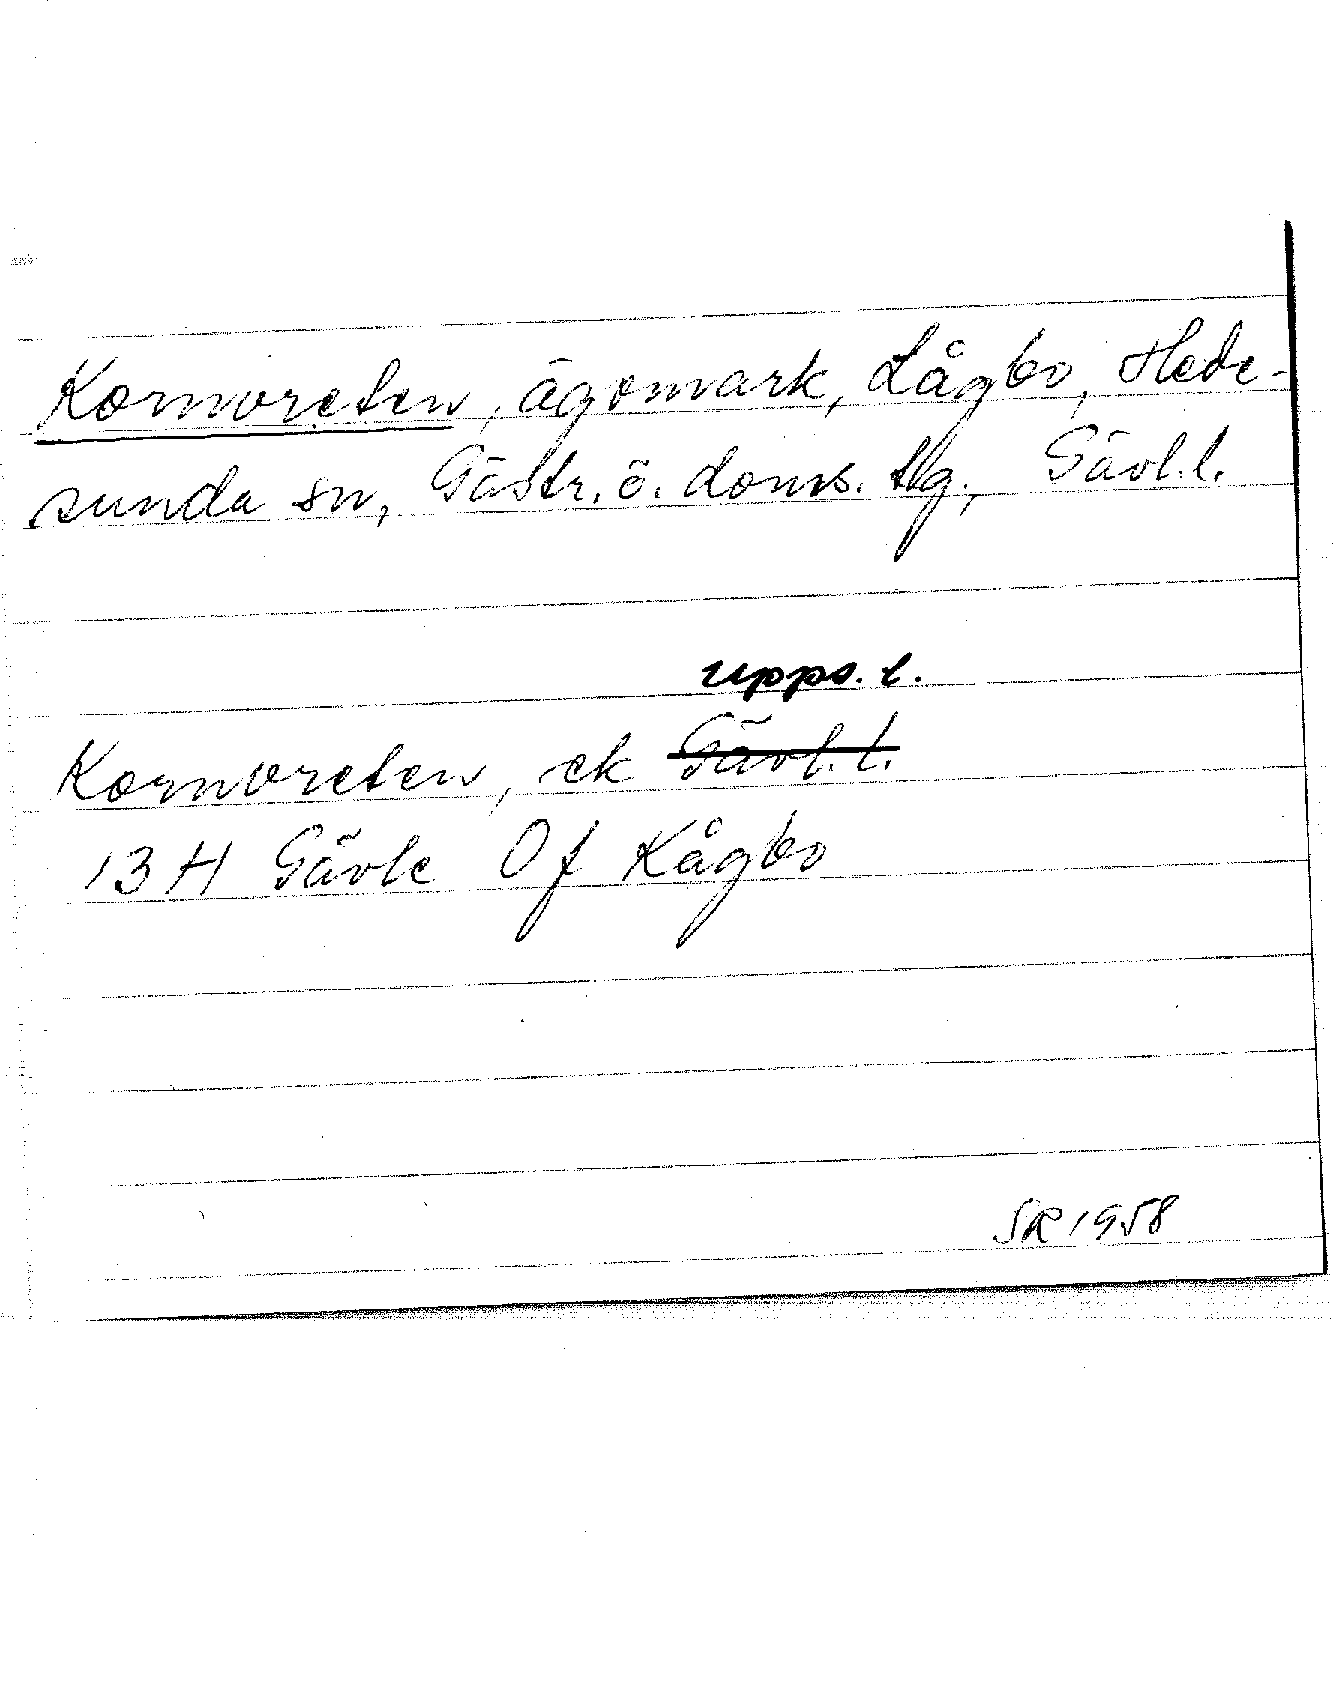 Kornvreten, ägomark, Lågbo, Hede-
sunda sn, Gästr. ö. doms. tlg., Gävl. l.
Upps. l.
Kornvreten, ek Gävl. l.
13 H Gävle 0 f Kågbo
SR 1958